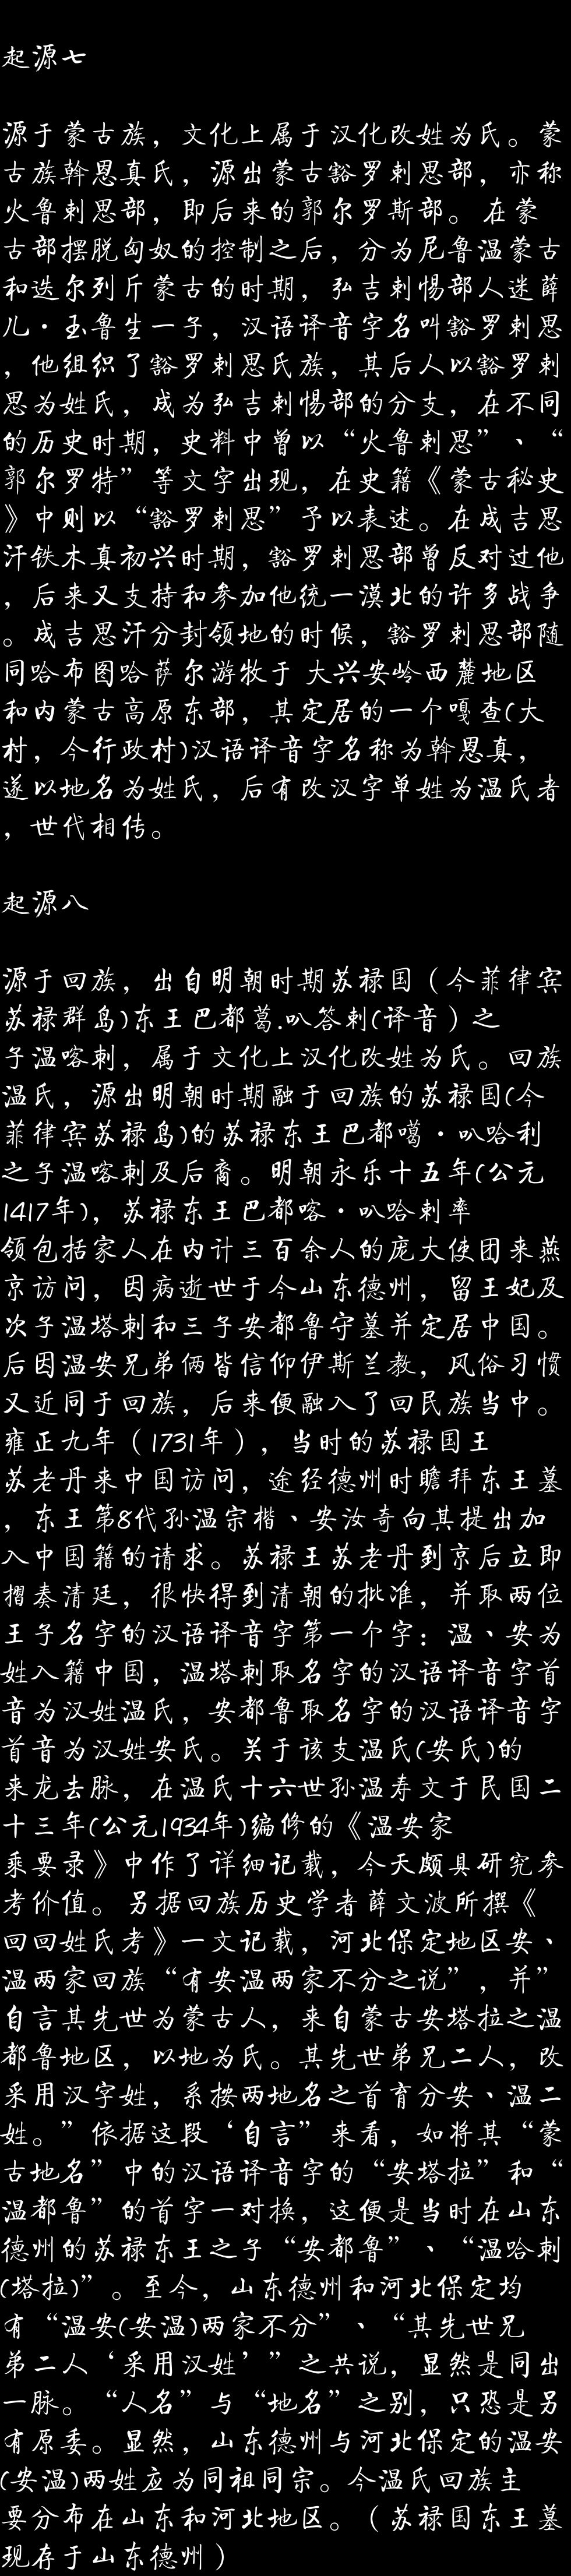 起源七
源于蒙古族，文化上属于汉化改姓为氏。蒙
古族斡恩真氏，源出蒙古豁罗剌思部，亦称
火鲁剌思部，即后来的郭尔罗斯部。在蒙
古部摆脱匈奴的控制之后，分为尼鲁温蒙古
和迭尔列斤蒙古的时期，弘吉剌惕部人迷薛
儿·玉鲁生一子，汉语译音字名叫豁罗剌思
，他组织了豁罗剌思氏族，其后人以豁罗剌
思为姓氏，成为弘吉剌惕部的分支，在不同
的历史时期，史料中曾以“火鲁剌思”、“
郭尔罗特”等文字出现，在史籍《蒙古秘史
》中则以“豁罗剌思”予以表述。在成吉思
汗铁木真初兴时期，豁罗剌思部曾反对过他
，后来又支持和参加他统一漠北的许多战争
。成吉思汗分封领地的时候，豁罗剌思部随
同哈布图哈萨尔游牧于 大兴安岭西麓地区
和内蒙古高原东部，其定居的一个嘎查(大
村，今行政村)汉语译音字名称为斡恩真，
遂以地名为姓氏，后有改汉字单姓为温氏者
，世代相传。
起源八
源于回族，出自明朝时期苏禄国（今菲律宾
苏禄群岛)东王巴都葛.叭答剌(译音）之
子温喀剌，属于文化上汉化改姓为氏。回族
温氏，源出明朝时期融于回族的苏禄国(今
菲律宾苏禄岛)的苏禄东王巴都噶·叭哈利
之子温喀剌及后裔。明朝永乐十五年(公元
1417年)，苏禄东王巴都喀·叭哈剌率
领包括家人在内计三百余人的庞大使团来燕
京访问，因病逝世于今山东德州，留王妃及
次子温塔剌和三子安都鲁守墓并定居中国。
后因温安兄弟俩皆信仰伊斯兰教，风俗习惯
又近同于回族，后来便融入了回民族当中。
雍正九年（1731年），当时的苏禄国王
苏老丹来中国访问，途经德州时瞻拜东王墓
，东王第8代孙温宗楷、安汝奇向其提出加
入中国籍的请求。苏禄王苏老丹到京后立即
摺奏清廷，很快得到清朝的批准，并取两位
王子名字的汉语译音字第一个字：温、安为
姓入籍中国，温塔剌取名字的汉语译音字首
音为汉姓温氏，安都鲁取名字的汉语译音字
首音为汉姓安氏。关于该支温氏(安氏)的
来龙去脉，在温氏十六世孙温寿文于民国二
十三年(公元1934年)编修的《温安家
乘要录》中作了详细记载，今天颇具研究参
考价值。另据回族历史学者薛文波所撰《
回回姓氏考》一文记载，河北保定地区安、
温两家回族“有安温两家不分之说”，并”
自言其先世为蒙古人，来自蒙古安塔拉之温
都鲁地区，以地为氏。其先世弟兄二人，改
采用汉字姓，系按两地名之首育分安、温二
姓。”依据这段‘自言”来看，如将其“蒙
古地名”中的汉语译音字的“安塔拉”和“
温都鲁”的首字一对换，这便是当时在山东
德州的苏禄东王之子“安都鲁”、“温哈剌
(塔拉)”。至今，山东德州和河北保定均
有“温安(安温)两家不分”、“其先世兄
弟二人‘采用汉姓’”之共说，显然是同出
一脉。“人名”与“地名”之别，只恐是另
有原委。显然，山东德州与河北保定的温安
(安温)两姓应为同祖同宗。今温氏回族主
要分布在山东和河北地区。（苏禄国东王墓
现存于山东德州）